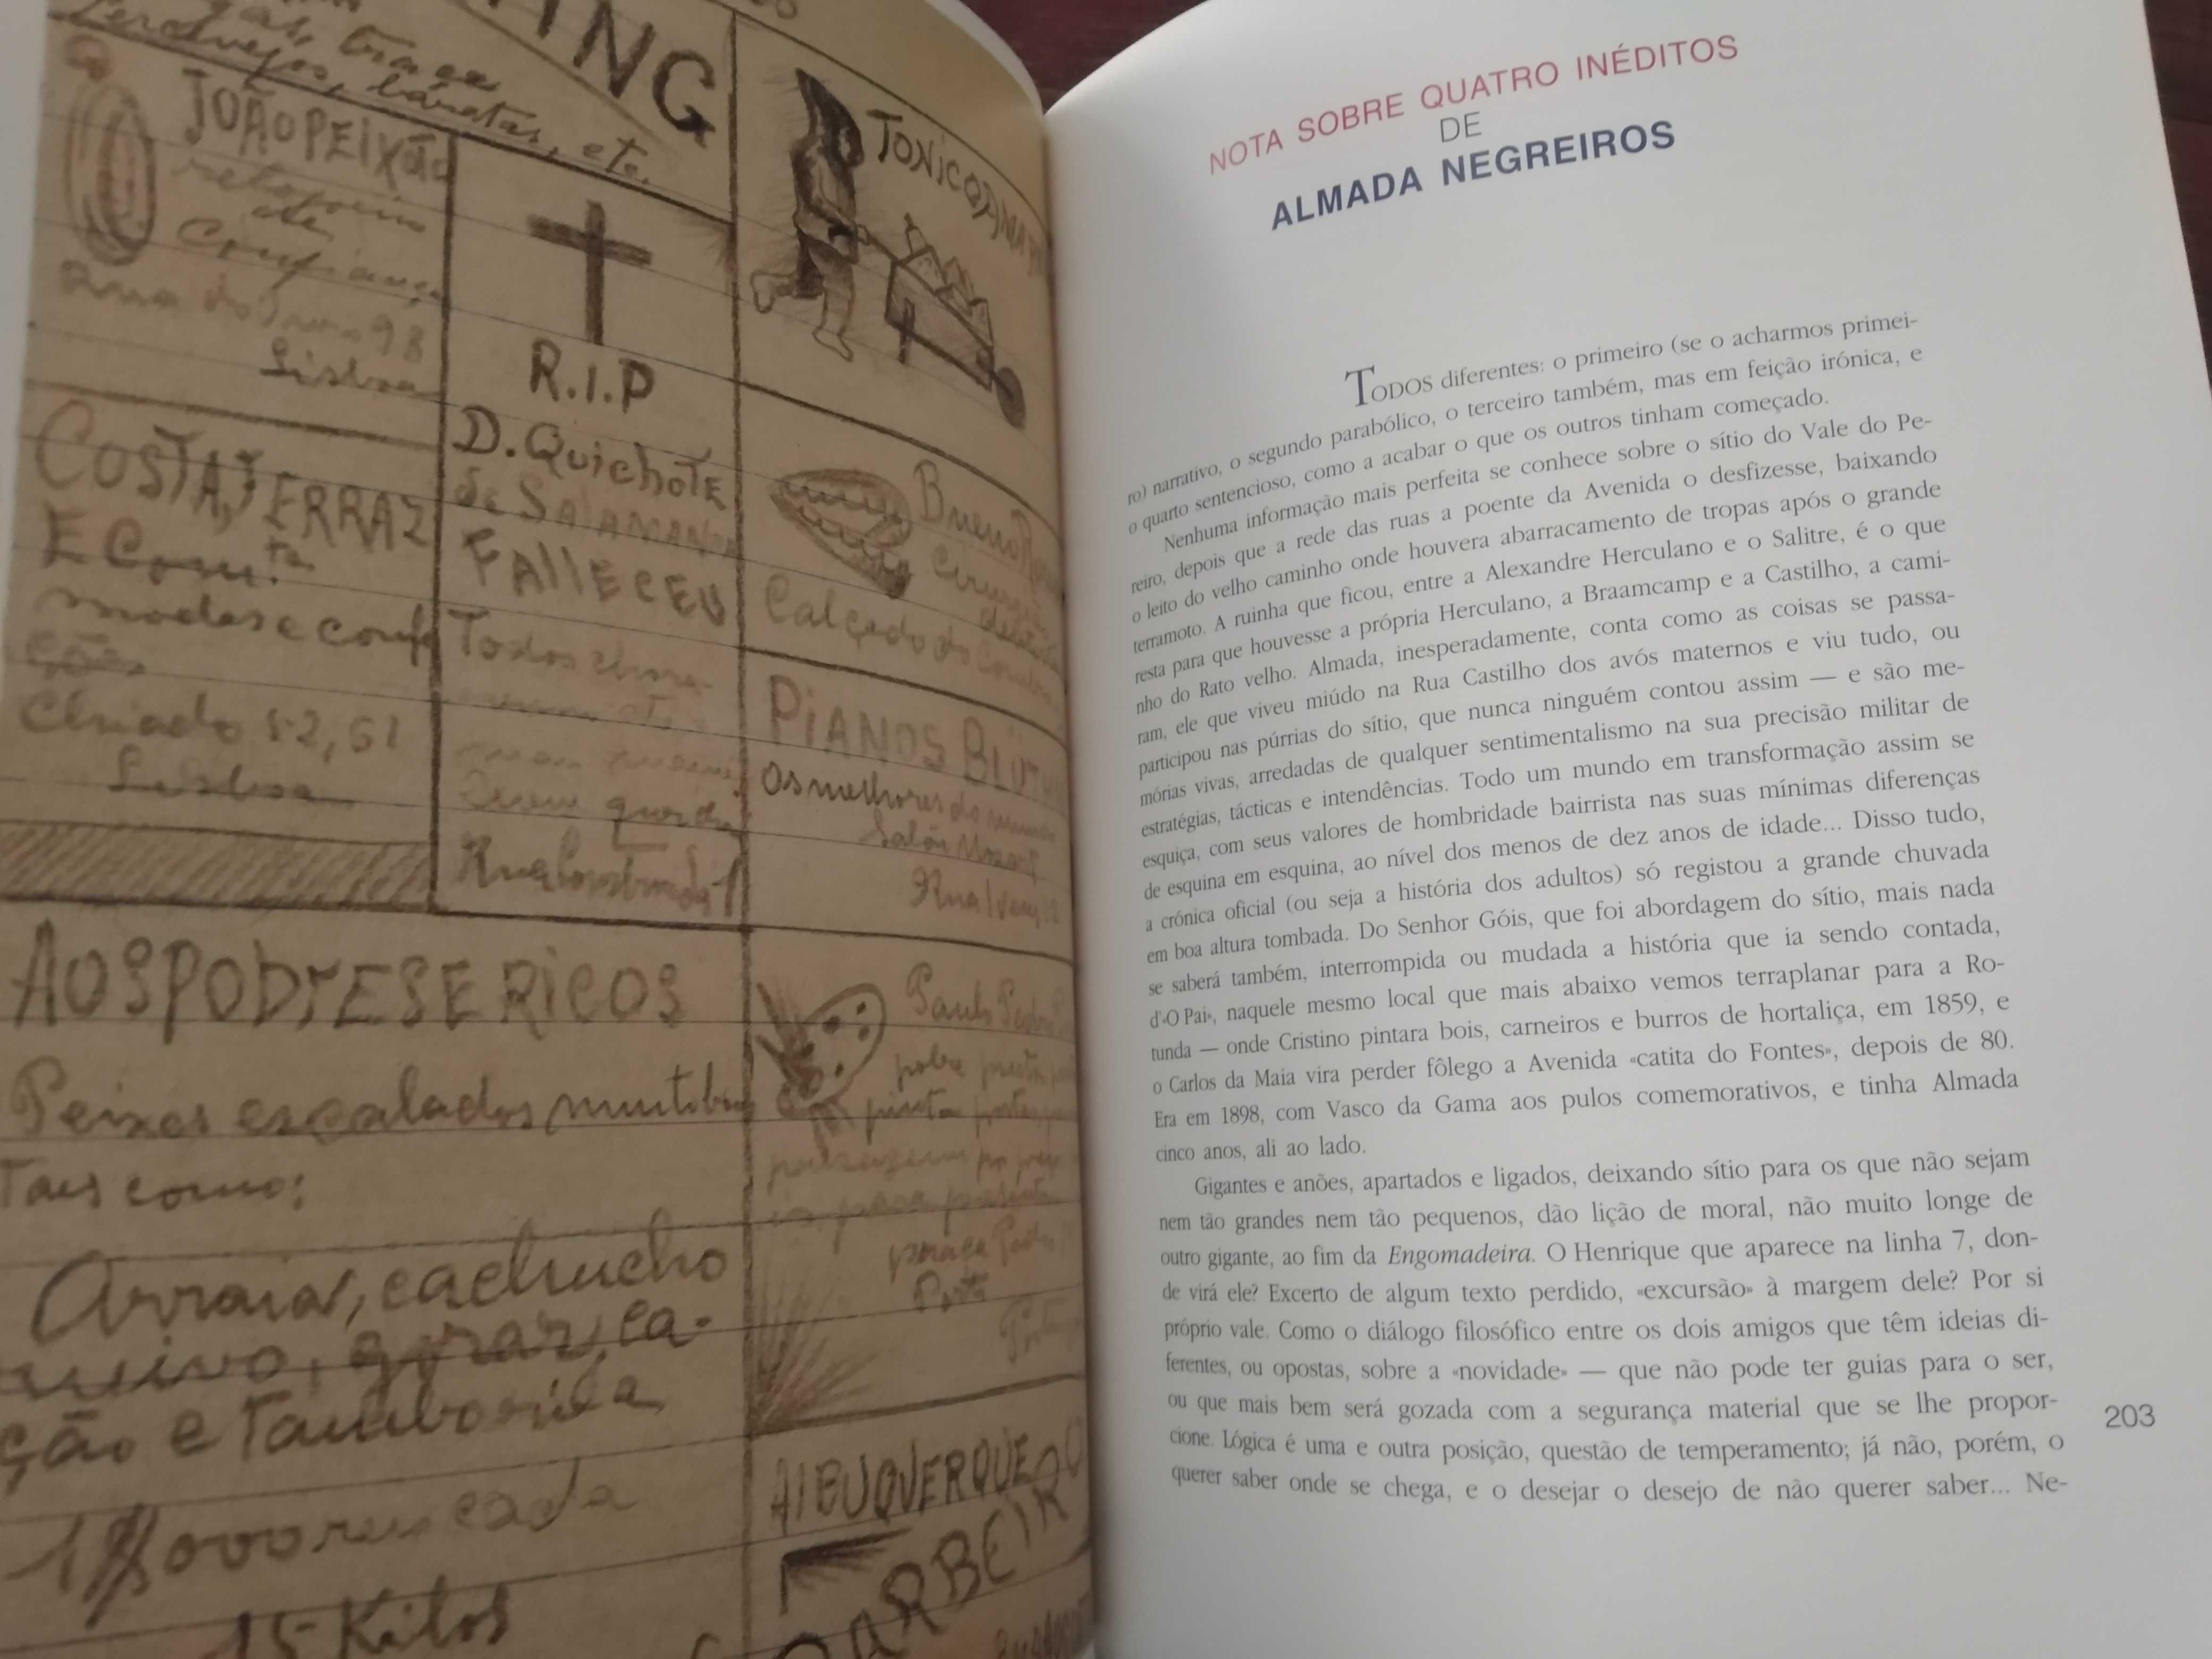 TING
traça
percevejos, baratas, etc.
JOÃO PEIXÃO
relojoeiro
de
Confiança
Rua do Ouro 98
Lisboa
COSTA, FERRAZ
E Com.ta
modas e confe
ções
Chiado 52, 61
Lisboa
R.I.P
D. QUICHOTE
de SALAMANCA
FALLECEU
Todos
Quem
AOS PODRES E RICOS
Peixes escalados muito bons
Taes como:
Arraia, cachucho
goraz, ca-
ção e Tamboril a
cada
15 Kilos
TONICO
Bueno
Calçado do
PIANOS
Os melhores do mundo
Salão Mozart
Rua
Paulo
pobre
pinta
Porto
ALBUQUERQUE
NOTA SOBRE QUATRO INÉDITOS
DE
ALMADA NEGREIROS
TODOS diferentes: o primeiro (se o acharmos primei-
ro) narrativo, o segundo parabólico, o terceiro também, mas em feição irónica, e
o quarto sentencioso, como a acabar o que os outros tinham começado.
Nenhuma informação mais perfeita se conhece sobre o sítio do Vale do Pe-
reiro, depois que a rede das ruas a poente da Avenida o desfizesse, baixando
o leito do velho caminho onde houvera abarracamento de tropas após o grande
terramoto. A ruinha que ficou, entre a Alexandre Herculano e o Salitre, é o que
resta para que houvesse a própria Herculano, a Braamcamp e a Castilho, a cami-
nho do Rato velho. Almada, inesperadamente, conta como as coisas se passa-
ram, ele que viveu miúdo na Rua Castilho dos avós maternos e viu tudo, ou
participou nas púrrias do sítio, que nunca ninguém contou assim — e são me-
mórias vivas, arredadas de qualquer sentimentalismo na sua precisão militar de
estratégias, tácticas e intendências. Todo um mundo em transformação assim se
esquiça, com seus valores de hombridade bairrista nas suas mínimas diferenças
de esquina em esquina, ao nível dos menos de dez anos de idade... Disso tudo,
a crónica oficial (ou seja a história dos adultos) só registou a grande chuvada
em boa altura tombada. Do Senhor Góis, que foi abordagem do sítio, mais nada
se saberá também, interrompida ou mudada a história que ia sendo contada,
d'«O Pai», naquele mesmo local que mais abaixo vemos terraplanar para a Ro-
tunda — onde Cristino pintara bois, carneiros e burros de hortaliça, em 1859, e
o Carlos da Maia vira perder fôlego a Avenida «catita do Fontes», depois de 80.
Era em 1898, com Vasco da Gama aos pulos comemorativos, e tinha Almada
cinco anos, ali ao lado.
Gigantes e anões, apartados e ligados, deixando sítio para os que não sejam
nem tão grandes nem tão pequenos, dão lição de moral, não muito longe de
outro gigante, ao fim da Engomadeira. O Henrique que aparece na linha 7, don-
de virá ele? Excerto de algum texto perdido, «excursão» à margem dele? Por si
próprio vale. Como o diálogo filosófico entre os dois amigos que têm ideias di-
ferentes, ou opostas, sobre a «novidade» — que não pode ter guias para o ser,
ou que mais bem será gozada com a segurança material que se lhe propor-
cione. Lógica é uma e outra posição, questão de temperamento; já não, porém, o
querer saber onde se chega, e o desejar o desejo de não querer saber... Ne-
203